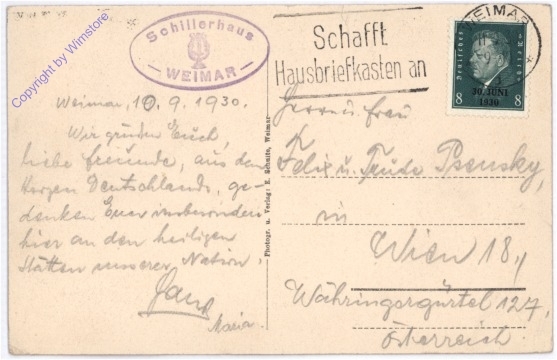 Copyright by Winstore
Schillerhaus
WEIMAR
Weimar, 10.9.1930.
Wir grüßen Euch,
liebe Freunde, aus dem
Herzen Deutschlands, ge-
denken Euer insbesondere
hier an den heiligen
Stätten unserer Nation.
Hans
Maria.
Photogr. u. Verlag: E. Schmitz, Weimar
Schafft
Hausbriefkasten an
WEIMAR
Deutsches Reich
30. JUNI
1930
8 8
Herrn u. Frau
Felix u. Trude Psensky,
in
Wien 18,,
Währingergürtel 127,
Österreich.